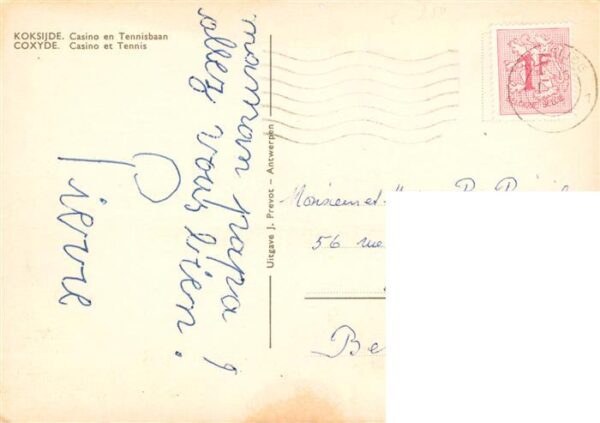 KOKSIJDE. Casino en Tennisbaan
COXYDE. Casino et Tennis
maman papa
allez vous bien !
Pierre
Uitgave J. Prevot – Antwerpen
1F
56 rue
Be